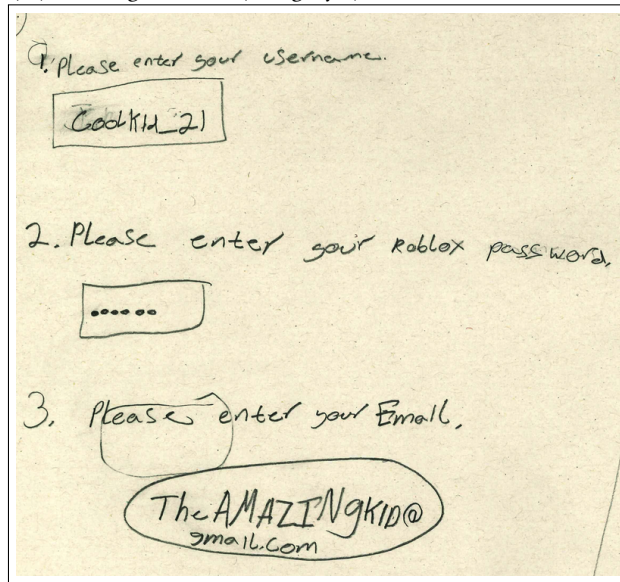 1. Please enter your username.
CoolKid_21
2. Please enter your Roblox password.
••••••
3. Please enter your Email.
TheAMAZINgKID@
gmail.com